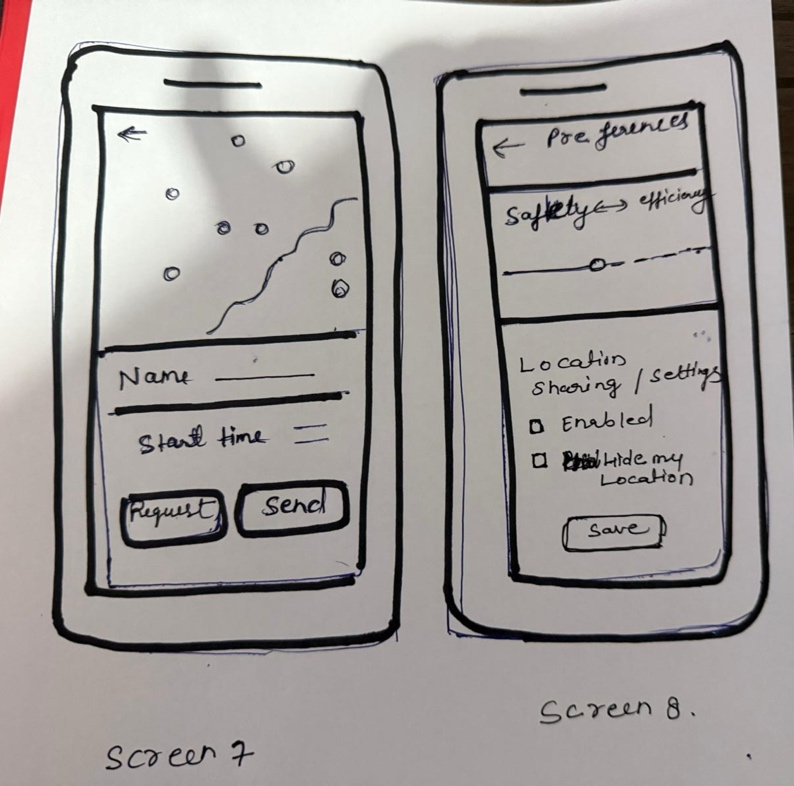 Name
Start time
Request
Send
Screen 7
Preferences
Safety ↔ efficiency
Location
Sharing / settings
Enabled
Hide my
Location
Save
Screen 8.